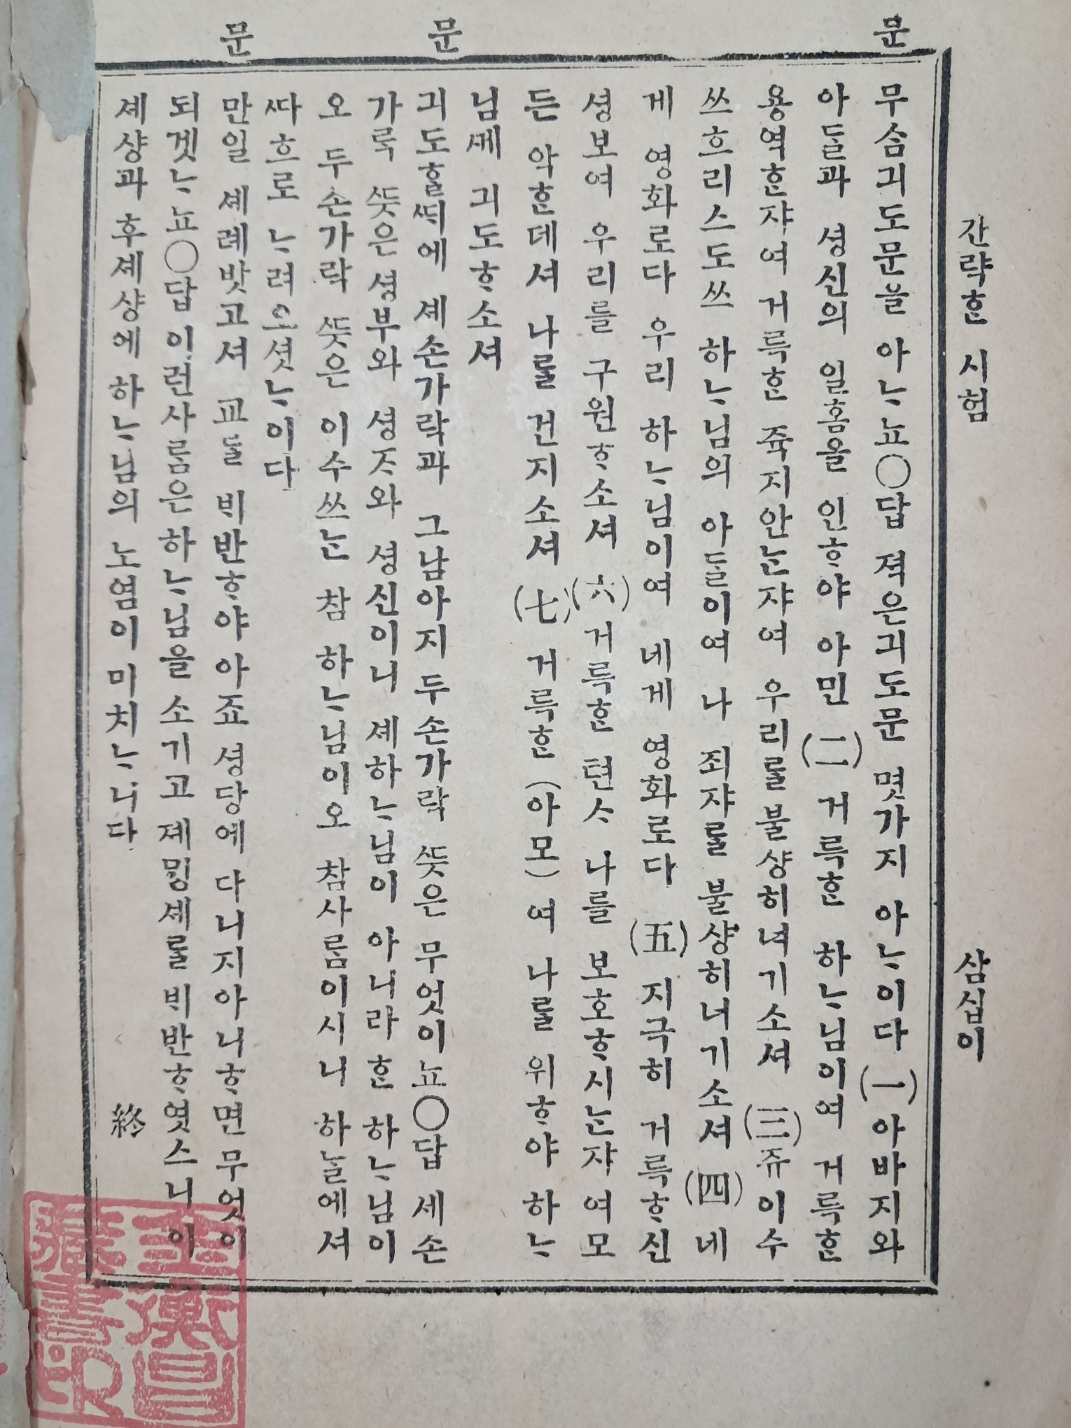 간략ᄒᆞᆫ 시험 삼십이
문
무ᄉᆞᆷ긔도문을 아ᄂᆞ뇨○답 젹은긔도문 몃가지 아ᄂᆞ이다 (一) 아바지와
아ᄃᆞᆯ과 셩신의 일홈을 인ᄒᆞ야 아민 (二) 거륵ᄒᆞᆫ 하ᄂᆞ님이여 거륵ᄒᆞᆫ
용역ᄒᆞᆫ쟈여 거륵ᄒᆞᆫ 쥭지안ᄂᆞᆫ쟈여 우리ᄅᆞᆯ불샹히녀기소셔 (三)쥬이수
쓰흐리스도쓰 하ᄂᆞ님의 아ᄃᆞᆯ이여 나 죄쟈ᄅᆞᆯ 불샹히녀기소셔 (四) 네
게 영화로다 우리 하ᄂᆞ님이여 네게 영화로다 (五) 지극히 거륵ᄒᆞ신
셩보여 우리를 구원ᄒᆞ소셔 (六) 거륵ᄒᆞᆫ 텬ᄉᆞ 나를 보호ᄒᆞ시ᄂᆞᆫ쟈여모
든 악ᄒᆞᆫ데셔 나ᄅᆞᆯ 건지소셔 (七) 거륵ᄒᆞᆫ (아모) 여 나ᄅᆞᆯ 위ᄒᆞ야 하ᄂᆞ
님ᄭᅦ 긔도ᄒᆞ소셔
문
긔도ᄒᆞᆯᄯᆡ에 셰손가락과 그남아지 두손가락 ᄯᅳᆺ은 무엇이뇨○답 세손
가록 ᄯᅳᆺ은셩부와 셩ᄌᆞ와 셩신이니 셰하ᄂᆞ님이 아니라 ᄒᆞᆫ 하ᄂᆞ님이
오 두손가락 ᄯᅳᆺ은 이수쓰ᄂᆞᆫ 참 하ᄂᆞ님이오 참사ᄅᆞᆷ이시니 하ᄂᆞᆯ에셔
ᄯᅡ흐로 ᄂᆞ려오셧ᄂᆞ이다
문
만일 셰례밧고셔 교ᄃᆞᆯ ᄇᆡ반ᄒᆞ야 아죠셩당에 다니지아니ᄒᆞ면 무엇이
되겟ᄂᆞ뇨○답 이런사ᄅᆞᆷ은하ᄂᆞ님을 소기고 졔ᄆᆡᆼ셰ᄅᆞᆯ ᄇᆡ반ᄒᆞ엿스니 이
셰샹과 후셰샹에 하ᄂᆞ님의 노염이 미치ᄂᆞ니다 終